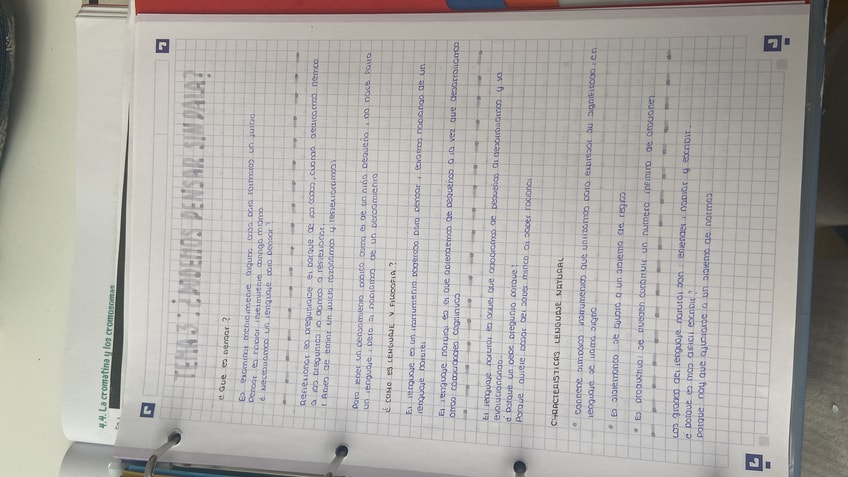 TEMA 3: ¿PODEMOS PENSAR SIN PALABRAS?
¿Qué es pensar?
Es examinar mentalmente alguna cosa para formarse un juicio.
Pensar es hablar interiormente contigo mismo
¿ Necesitamos un lenguaje para pensar?
Reflexionar es preguntarse el porque de las cosas, cuando
a las preguntas lo damos a reflexionar.
( Antes de emitir un juicio razonamos y reflexionamos)
Para tener un pensamiento como es de un niño pequeño, no hace falta
un lenguaje, pero si hablamos de un pensamiento
¿ COMO ES LENGUAJE Y FILOSOFIA ?
El lenguaje es un instrumento poderoso para pensar, hablamos de un
lenguaje natural.
El lenguaje natural es el que aprendemos de pequeños a la vez que desarrollamos
otras capacidades cognitivas
El lenguaje natural es aquel que adquirimos de pequeños al desarrollarnos y va
evolucionando.
¿ Porque un bebe pregunta porque?
Porque quiere pasar del saber mítico al saber racional
CARACTERÍSTICAS LENGUAJE NATURAL
• Contiene símbolos instrumentos que utilizamos para expresar su significado, en
lenguaje se llama signo
• Es sistemático se ajusta a un sistema de reglas
• Es productivo se pueden construir un numero infinito de oraciones
Los grados del lenguaje natural son entender, hablar y escribir.
¿ porque es mas dificil escribir?
Porque hay que ajustarse a un sistema de normas
4.4. La cromatina y los cromosomas